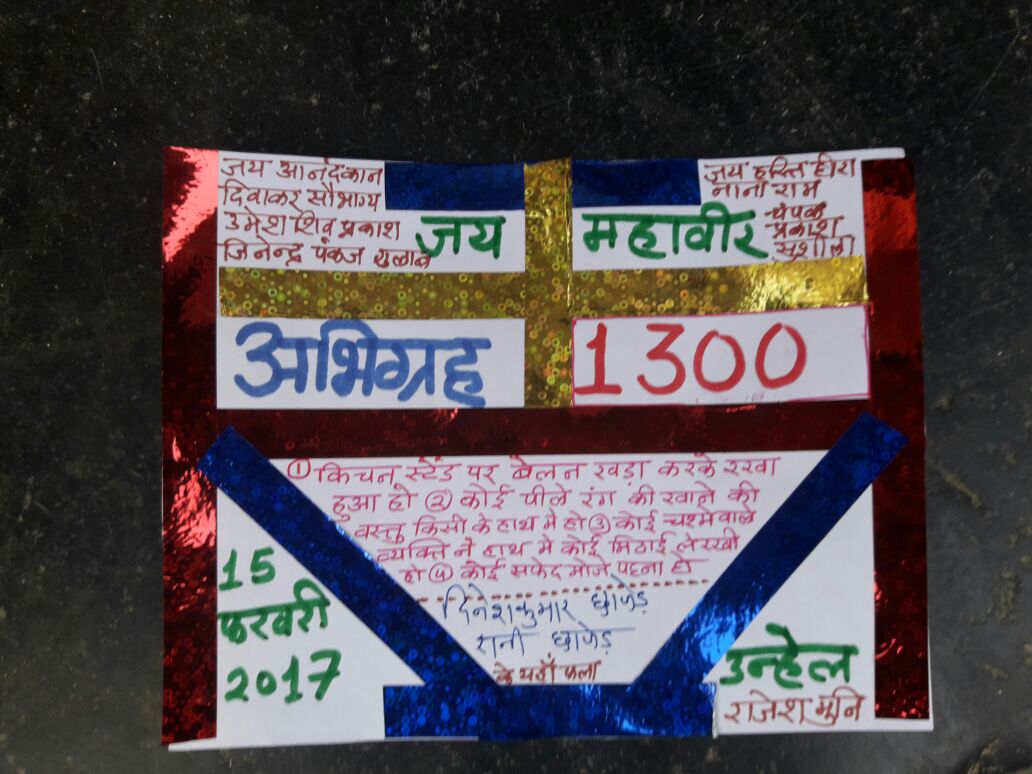 जय आनंदकान
दिवाकर सौभाग्य
उमेश शिव प्रकाश
जिनेन्द्र पंकज गुलाब
जय महावीर
जय हस्ति हीरा
नाना राम
चंपक
प्रकाश
सुशीला
अभिग्रह
1300
① किचन स्टेंड पर बेलन खड़ा करके रखा
हुआ हो ② कोई पीले रंग की खाने की
वस्तु किसी के हाथ मे हो ③ कोई चश्मेवाले
व्यक्ति ने हाथ मे कोई मिठाई ले रखी
हो ④ कोई सफेद मोजे पहना हो
दिनेशकुमार छाजेड़
रानी छाजेड़
के यहाँ फला
15
फरवरी
2017
उन्हेल
राजेश मुनि